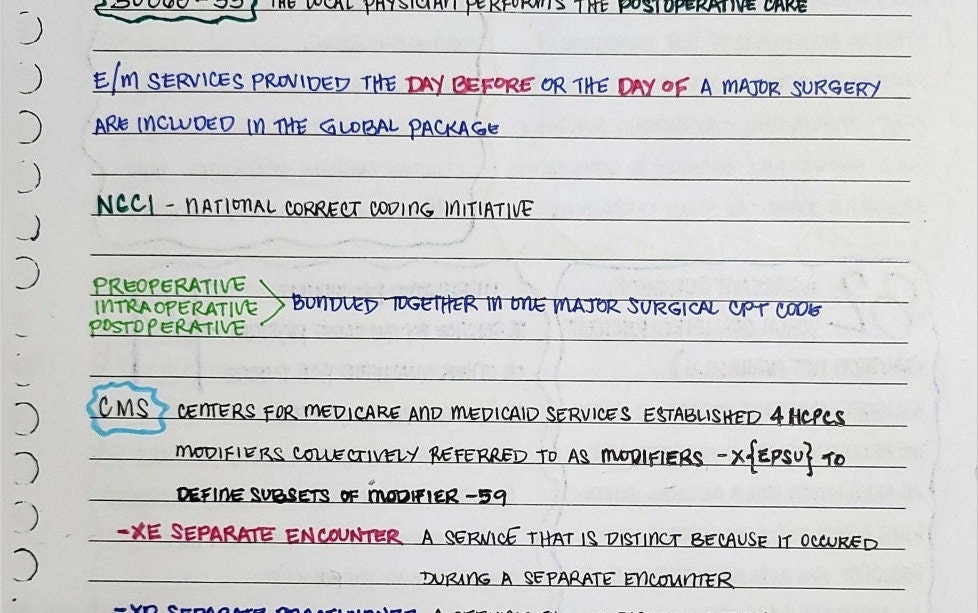 THE LOCAL PHYSICIAN PERFORMS THE POSTOPERATIVE CARE
E/M SERVICES PROVIDED THE DAY BEFORE OR THE DAY OF A MAJOR SURGERY
ARE INCLUDED IN THE GLOBAL PACKAGE
NCCI - NATIONAL CORRECT CODING INITIATIVE
PREOPERATIVE
INTRAOPERATIVE BUNDLED TOGETHER IN ONE MAJOR SURGICAL CPT CODE
POSTOPERATIVE
CMS CENTERS FOR MEDICARE AND MEDICAID SERVICES ESTABLISHED 4 HCPCS
MODIFIERS COLLECTIVELY REFERRED TO AS MODIFIERS -X{EPSU} TO
DEFINE SUBSETS OF MODIFIER -59
-XE SEPARATE ENCOUNTER A SERVICE THAT IS DISTINCT BECAUSE IT OCCURED
DURING A SEPARATE ENCOUNTER